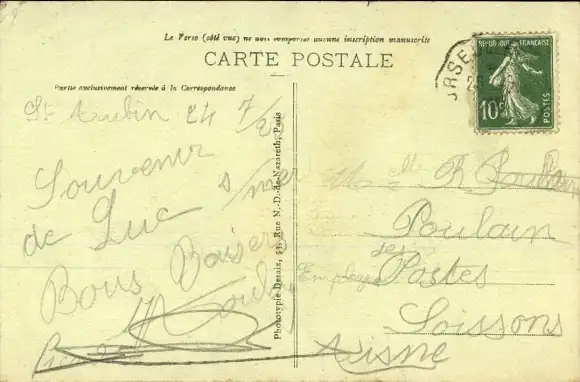 Le Verso (côté vue) ne doit comporter aucune inscription manuscrite
CARTE POSTALE
Partie exclusivement réservée à la Correspondance
RÉPUBLIQUE FRANÇAISE
10c
POSTES
St Aubin 24 7/25
Souvenir
de Luc s/mer
Bons Baisers
Phototypie Desaix, 53, Rue N.-D.-de-Nazareth, Paris
Melle R. Poulain
Poulain
Employée
Postes
Soissons
Aisne